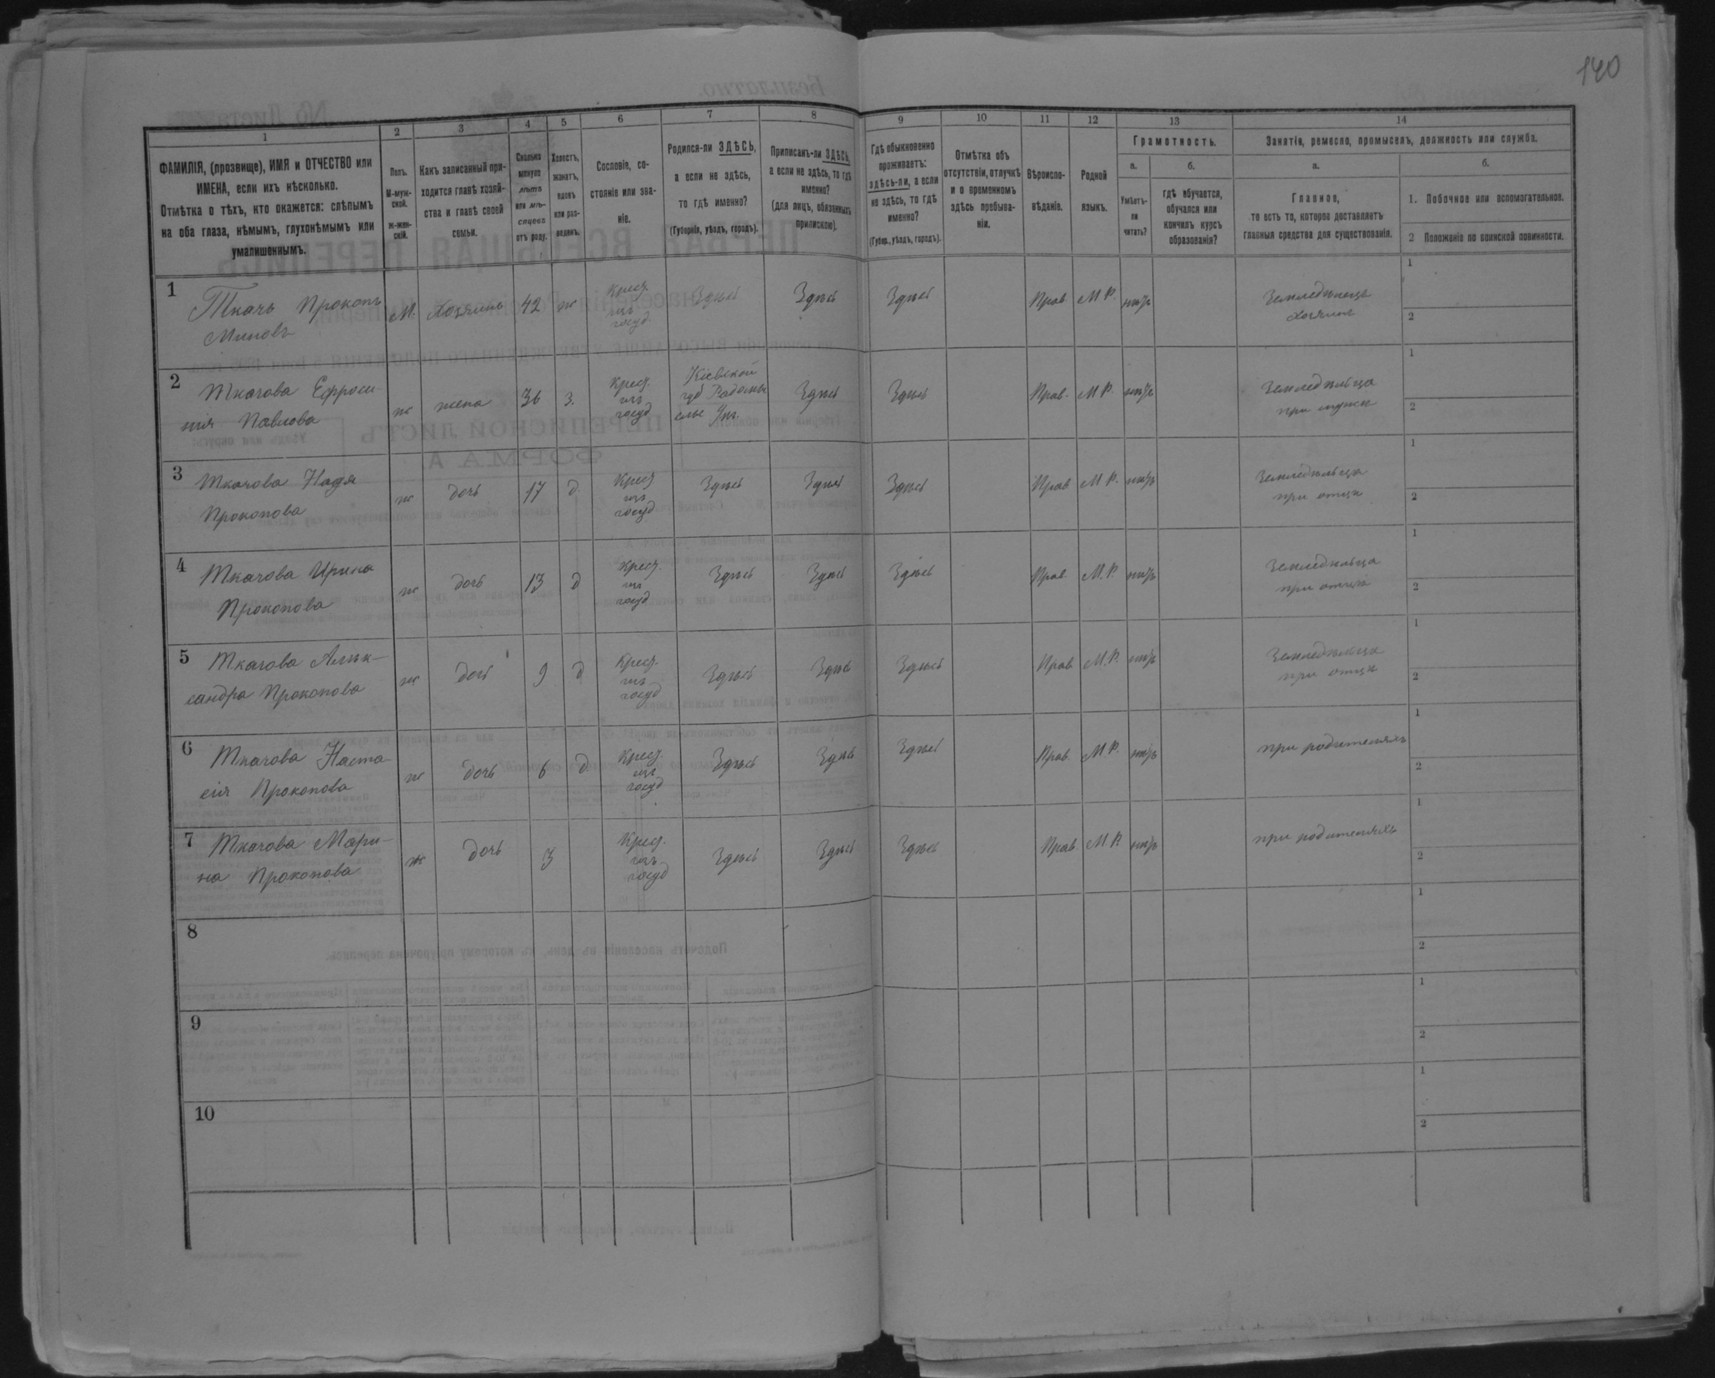 140
1 2 3 4 5 6 7 8 9 10 11 12 13 14
ФАМИЛІЯ, (прозвище), ИМЯ и ОТЧЕСТВО или
ИМЕНА, если ихъ нѣсколько.
Отмѣтка о тѣхъ, кто окажется: слѣпымъ
на оба глаза, нѣмымъ, глухонѣмымъ или
умалишеннымъ.
Полъ.
М-муж-
ской.
Ж-жен-
скій.
Какъ записанный при-
ходится главѣ хозяй-
ства и главѣ своей
семьи.
Сколько
минуло
лѣтъ
или мѣ-
сяцевъ
отъ роду.
Холостъ,
женатъ,
вдовъ
или раз-
веденъ.
Сословіе, со-
стояніе или зва-
ніе.
Родился-ли ЗДѢСЬ,
а если не здѣсь,
то гдѣ именно?
(Губернія, уѣздъ, городъ).
Приписанъ-ли ЗДѢСЬ,
а если не здѣсь, то гдѣ
именно?
(для лицъ, обязанныхъ
припиской).
Гдѣ обыкновенно
проживаетъ:
здѣсь-ли, а если
не здѣсь, то гдѣ
именно?
(Губер., уѣздъ, городъ).
Отмѣтка объ
отсутствіи, отлучкѣ
и о временномъ
здѣсь пребыва-
ніи.
Вѣроиспо-
вѣданіе.
Родной
языкъ.
Грамотность.
а.
Умѣетъ-
ли
читать?
б.
гдѣ обучается,
обучался или
кончилъ курсъ
образованія?
Занятіе, ремесло, промыселъ, должность или служба.
а.
Главное,
то есть то, которое доставляетъ
главныя средства для существованія.
б.
1. Побочное или вспомогательное.
2 Положеніе по воинской повинности.
1 Ткачъ Прокопъ М. Хозяинъ 42 ж Крест Здѣсь Здѣсь Здѣсь Прав М Р. нѣтъ Земледѣлецъ 1
Миновъ изъ госуд хозяинъ 2
2 Ткачова Ефроси ж жена 36 з. Крест. Кіевской Здѣсь Здѣсь Прав. М Р. нѣтъ Земледѣльца 1
нія Павлова изъ госуд губ Радомы при мужѣ 2
3 Ткачова Надя ж дочь 17 д Крест Здѣсь Здѣсь Здѣсь Прав М Р. нѣтъ Земледѣльца 1
Прокопова изъ госуд при отцѣ 2
4 Ткачова Ирина ж дочь 13 д Крест. Здѣсь Здѣсь Здѣсь Прав М. Р. нѣтъ Земледѣльца 1
Прокопова изъ госуд при отцѣ 2
5 Ткачова Алек- ж дочь 9 д Крест. Здѣсь Здѣсь Здѣсь Прав М. Р. нѣтъ Земледѣльца 1
сандра Прокопова изъ госуд при отцѣ 2
6 Ткачова Наста- ж дочь 6 д Крест Здѣсь Здѣсь Здѣсь Прав М Р. нѣтъ при родителяхъ 1
сія Прокопова изъ госуд 2
7 Ткачова Мари- ж дочь 3 Крест. Здѣсь Здѣсь Здѣсь Прав М Р нѣтъ при родителяхъ 1
на Прокопова изъ госуд 2
8 1
2
9 1
2
10 1
2